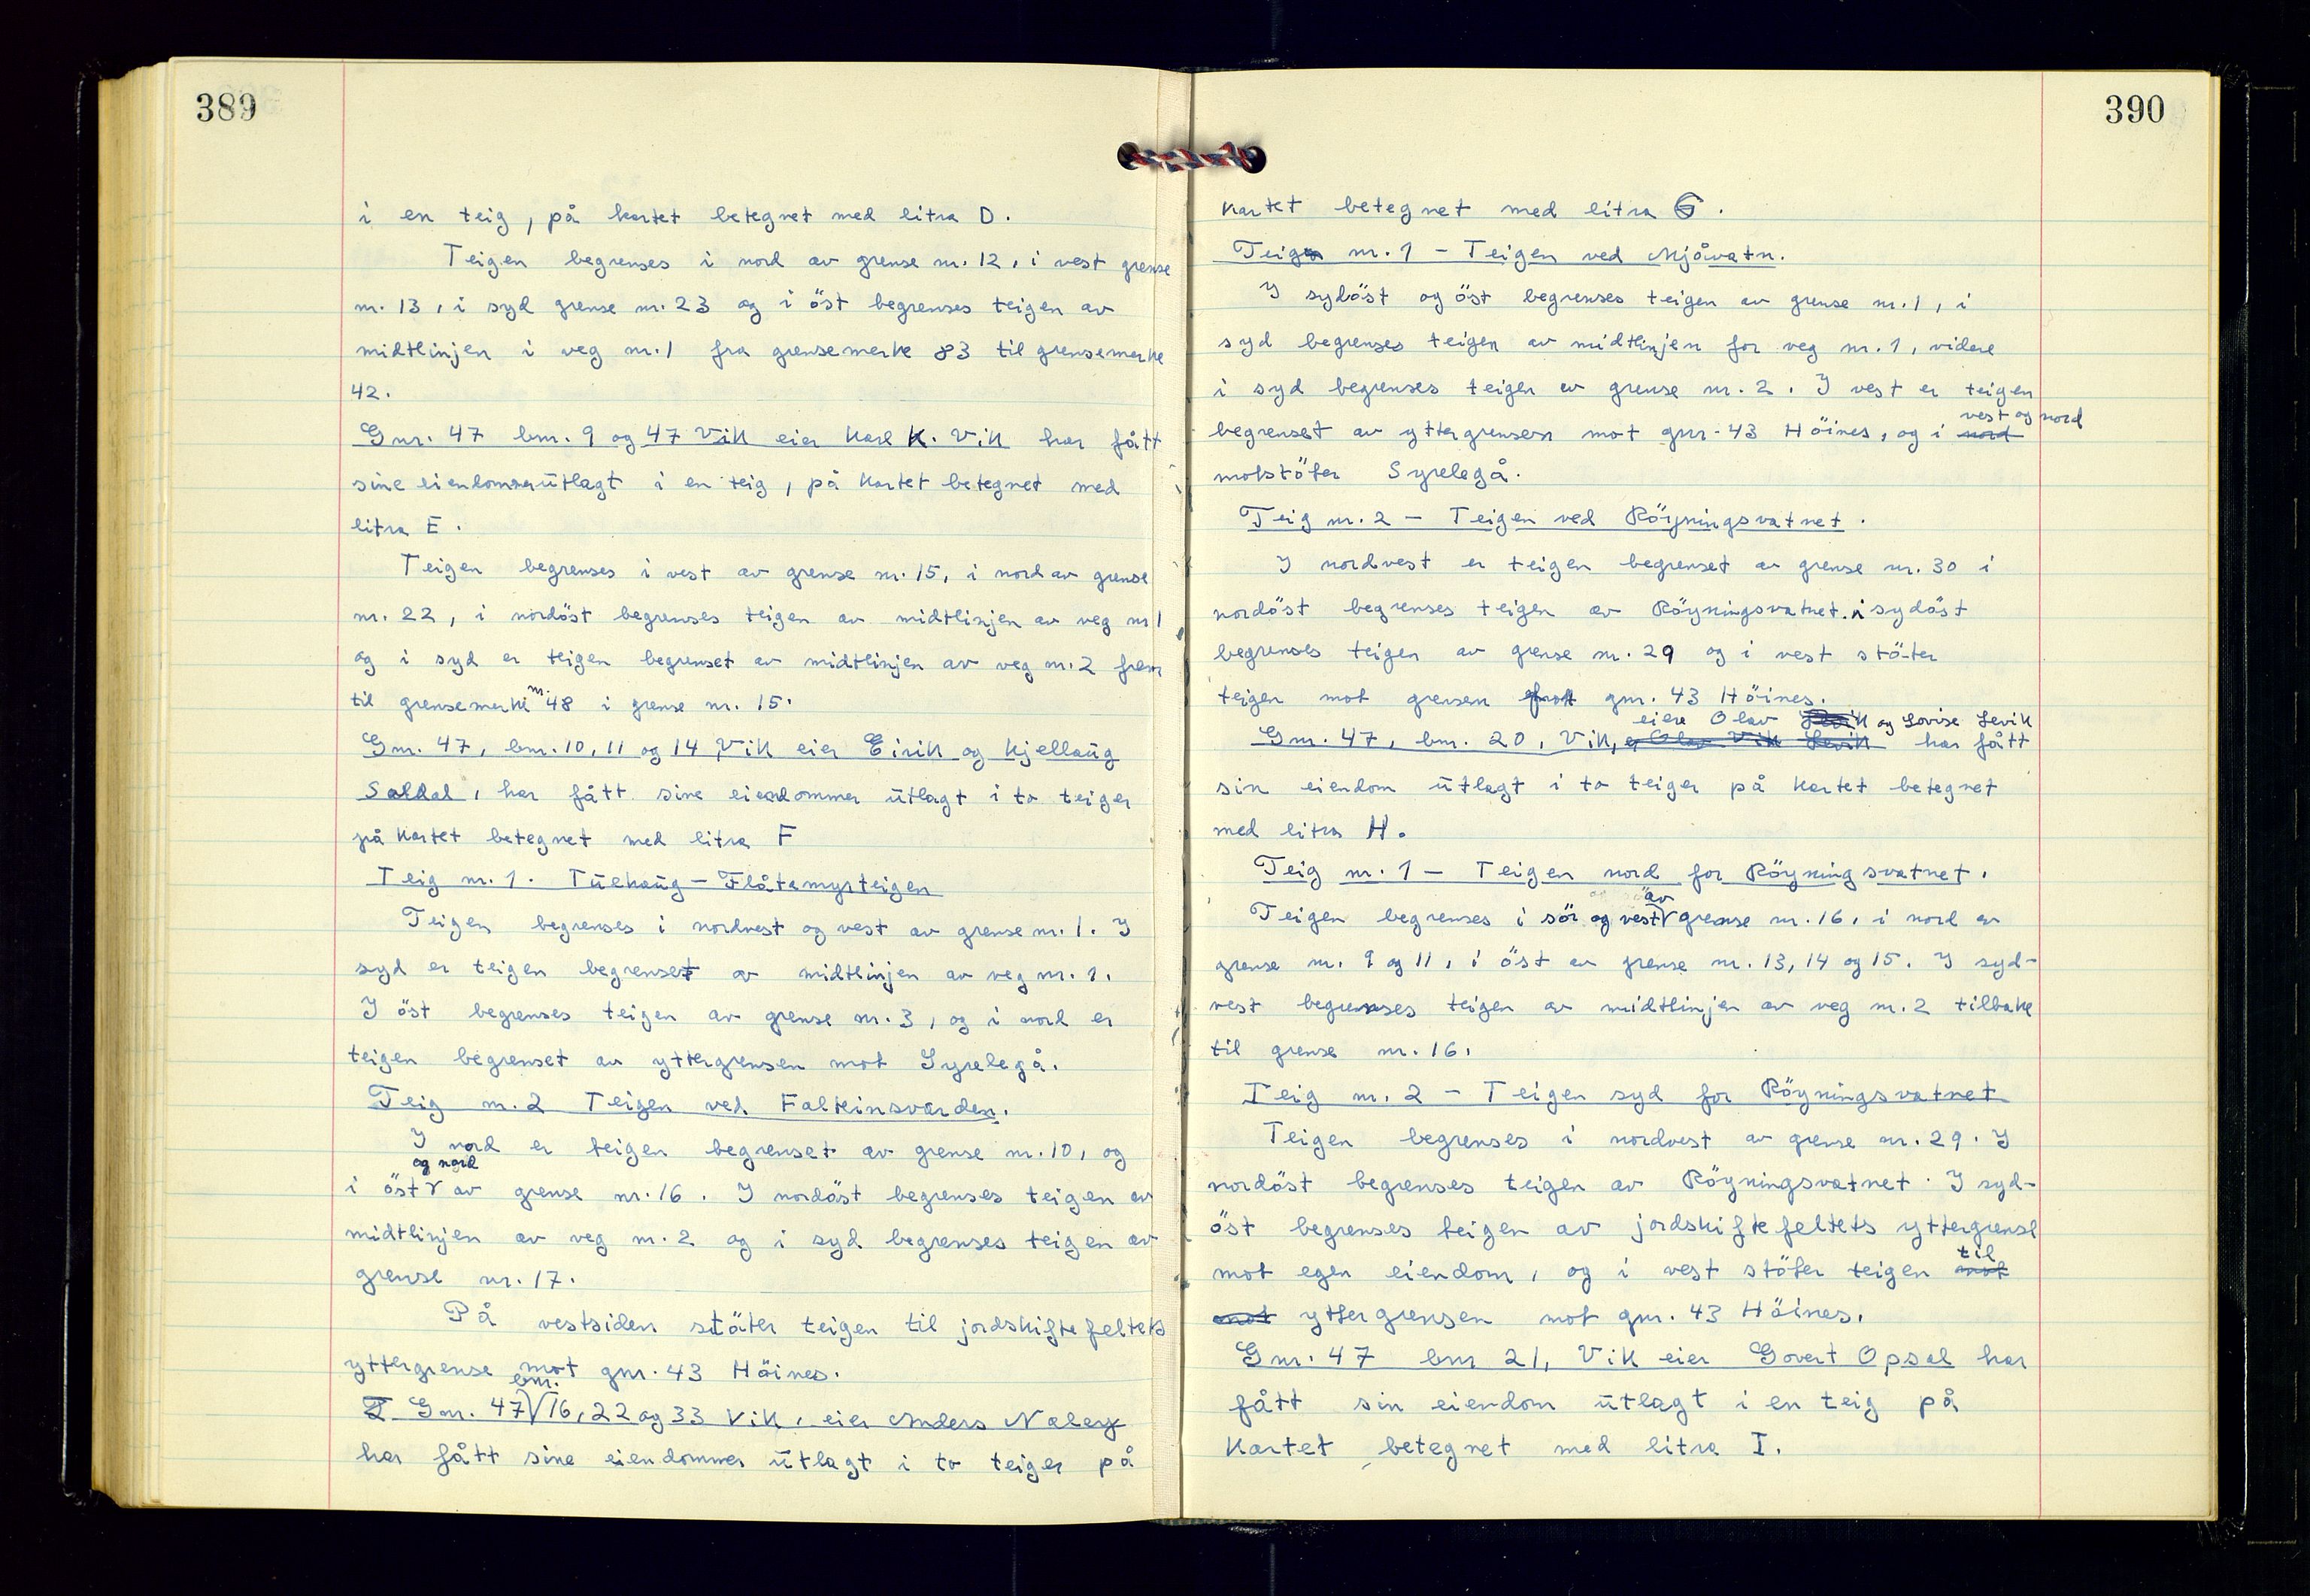 389
i en teig, på kartet betegnet med litra D.
Teigen begrenses i nord av grense nr. 12, i vest grense
nr. 13, i syd grense nr. 23 og i öst begrenses teigen av
midtlinjen i veg nr. 1 fra grensemerke 83 til grensemerke
42.
Gnr. 47 bnr. 9 og 47 Vik eier Karl K. Vik har fått
sine eiendommer utlagt i en teig, på kartet betegnet med
litra E.
Teigen begrenses i vest av grense nr. 15, i nord av grense
nr. 22, i nordöst begrenses teigen av midtlinjen av veg nr 1
og i syd er teigen begrenset av midtlinjen av veg nr. 2 frem
til grensemerke nr. 48 i grense nr. 15.
Gnr. 47, bnr. 10, 11 og 14 Vik eier Eirik og Kjellaug
Saldal, har fått sine eiendommer utlagt i to teiger
på kartet betegnet med litra F
Teig nr. 1. Tuehaug - Flåtamyrteigen
Teigen begrenses i nordvest og vest av grense nr. 1. I
syd er teigen begrenset av midtlinjen av veg nr. 1.
I öst begrenses teigen av grense nr. 3, og i nord er
teigen begrenset av yttergrensen mot Syrelegå.
Teig nr. 2 Teigen ved Falkinsvarden.
I nord er teigen begrenset av grense nr. 10, og
og nord
i öst av grense nr. 16. I nordöst begrenses teigen av
midtlinjen av veg nr. 2 og i syd begrenses teigen av
grense nr. 17.
På vestsiden stöter teigen til jordskiftefeltets
yttergrense mot gnr. 43 Höines.
bnr.
Gnr. 47 16, 22 og 33 Vik, eier Anders Naley
har fått sine eiendommer utlagt i to teiger på
390
kartet betegnet med litra G.
Teig nr. 1 - Teigen ved Mjåvatn.
I sydöst og öst begrenses teigen av grense nr. 1, i
syd begrenses teigen av midtlinjen for veg nr. 1, videre
i syd begrenses teigen av grense nr. 2. I vest er teigen
vest og nord
begrenset av yttergrensen mot gnr. 43 Höines, og i nord
motstöter Syrelegå.
Teig nr. 2 - Teigen ved Röyningsvatnet.
I nordvest er teigen begrenset av grense nr. 30 i
nordöst begrenses teigen av Röyningsvatnet. i sydöst
begrenses teigen av grense nr. 29 og i vest stöter
teigen mot grensen gnr. 43 Höines.
eiere Olav og Lovise Levik
Gnr. 47, bnr. 20, Vik, Olav Vik Levik har fått
sin eiendom utlagt i to teiger på kartet betegnet
med litra H.
Teig nr. 1 - Teigen nord for Röyningsvatnet.
av
Teigen begrenses i sör og vest grense nr. 16, i nord av
grense nr. 9 og 11, i öst av grense nr. 13, 14 og 15. I syd-
vest begrenses teigen av midtlinjen av veg nr. 2 tilbake
til grense nr. 16.
Teig nr. 2 - Teigen syd for Röyningsvatnet
Teigen begrenses i nordvest av grense nr. 29. I
nordöst begrenses teigen av Röyningsvatnet. I syd-
öst begrenses teigen av jordskiftefeltets yttergrense
til
mot egen eiendom, og i vest stöter teigen mot
mot yttergrensen mot gnr. 43 Höines.
Gnr. 47 bnr 21, Vik eier Govert Opsal har
fått sin eiendom utlagt i en teig på
kartet betegnet med litra I.